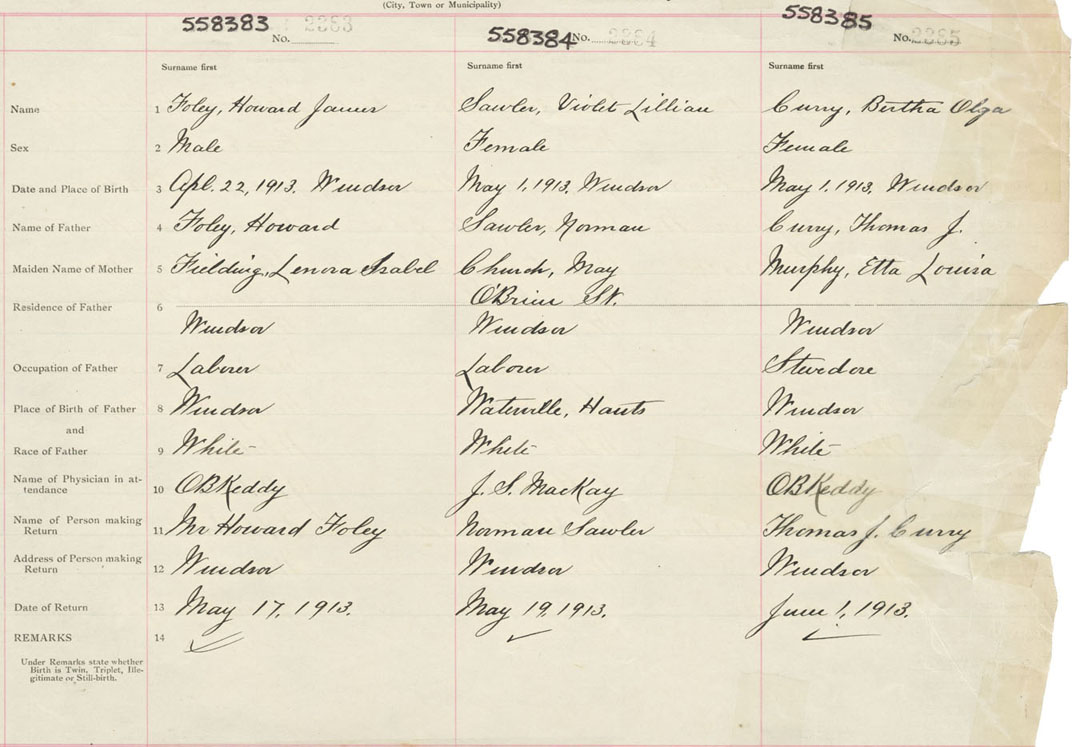 (City, Town or Municipality)
558383 No. 2263
558384 No. 2264
558385 No. 2265
Surname first Surname first Surname first
Name 1 Foley, Howard James Sawler, Violet Lillian Curry, Bertha Olga
Sex 2 Male Female Female
Date and Place of Birth 3 Apl. 22, 1913. Windsor May 1, 1913. Windsor May 1, 1913. Windsor
Name of Father 4 Foley, Howard Sawler, Norman Curry, Thomas J.
Maiden Name of Mother 5 Fielding, Lenora Isabel Church, May Murphy, Etta Louisa
Residence of Father 6 O'Brien St.
Windsor Windsor Windsor
Occupation of Father 7 Laborer Laborer Stevedore
Place of Birth of Father 8 Windsor Waterville, Hants Windsor
and
Race of Father 9 White White White
Name of Physician in at-
tendance 10 OBKeddy J. S. MacKay OBKeddy
Name of Person making
Return 11 Mr Howard Foley Norman Sawler Thomas J. Curry
Address of Person making
Return 12 Windsor Windsor Windsor
Date of Return 13 May 17, 1913. May 19, 1913. June 1, 1913.
REMARKS 14
Under Remarks state whether
Birth is Twin, Triplet, Ille-
gitimate or Still-birth.